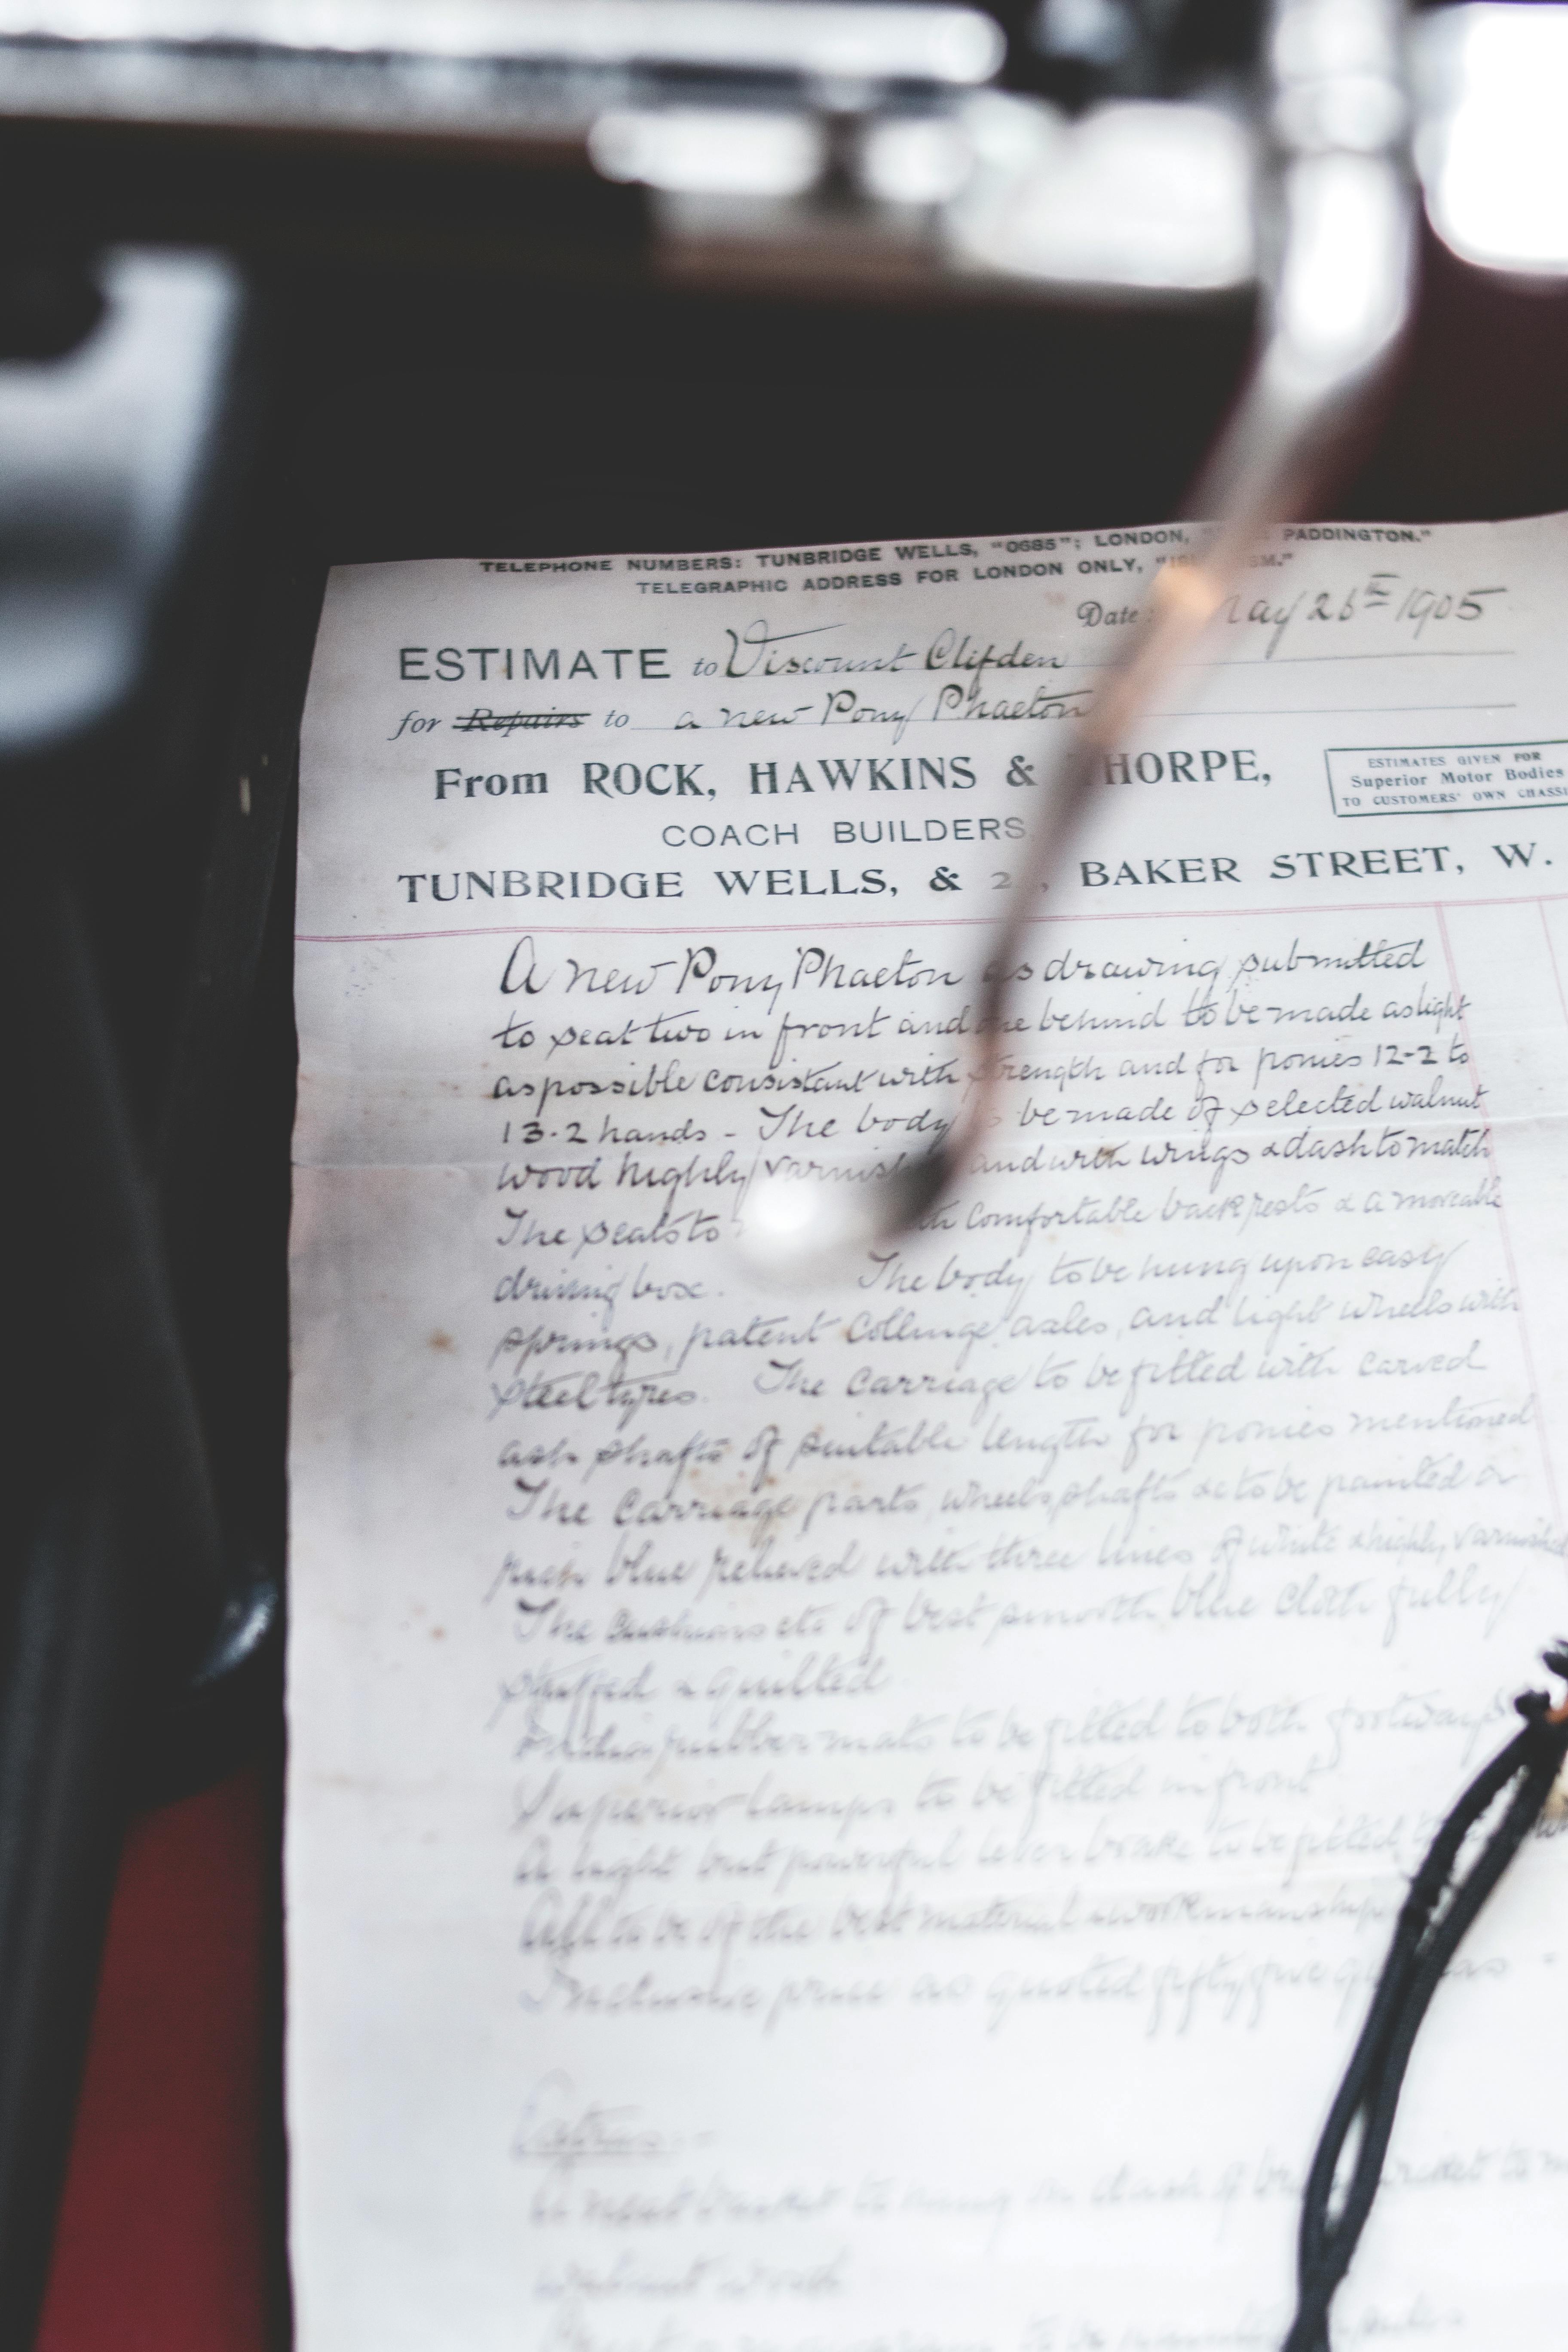 TELEPHONE NUMBERS: TUNBRIDGE WELLS, "0685"; LONDON, PADDINGTON."
TELEGRAPHIC ADDRESS FOR LONDON ONLY,
Date: May 26th 1905
ESTIMATE to Viscount Clifden
for Repairs to a new Pony Phaeton
From ROCK, HAWKINS & THORPE,
ESTIMATES GIVEN FOR
Superior Motor Bodies
TO CUSTOMERS' OWN CHASSI
COACH BUILDERS
TUNBRIDGE WELLS, & BAKER STREET, W.
A new Pony Phaeton as drawing submitted
to seat two in front and one behind to be made as light
as possible consistant with strength and for ponies 12-2 to
13-2 hands - The body be made of selected walnut
wood highly varnished and with wings & dash to match
The seats to with comfortable back rests & a moveable
driving box. The body to be hung upon easy
springs, patent Collinge axles, and light wheels with
steel tyres. The carriage to be fitted with carved
ash shafts of suitable length for ponies mentioned
The carriage parts, wheels, shafts &c to be painted a
blue relieved with three lines of white & highly varnished
The cushions etc of best smooth blue cloth fully
stuffed & quilted
rubber mats to be fitted to both footways
Superior lamps to be fitted in front
A light but powerful lever brake to be fitted
All to be of the best material & workmanship
Inclusive price as quoted fifty five guineas -
Extras:-
A neat basket to hang on dash
walnut